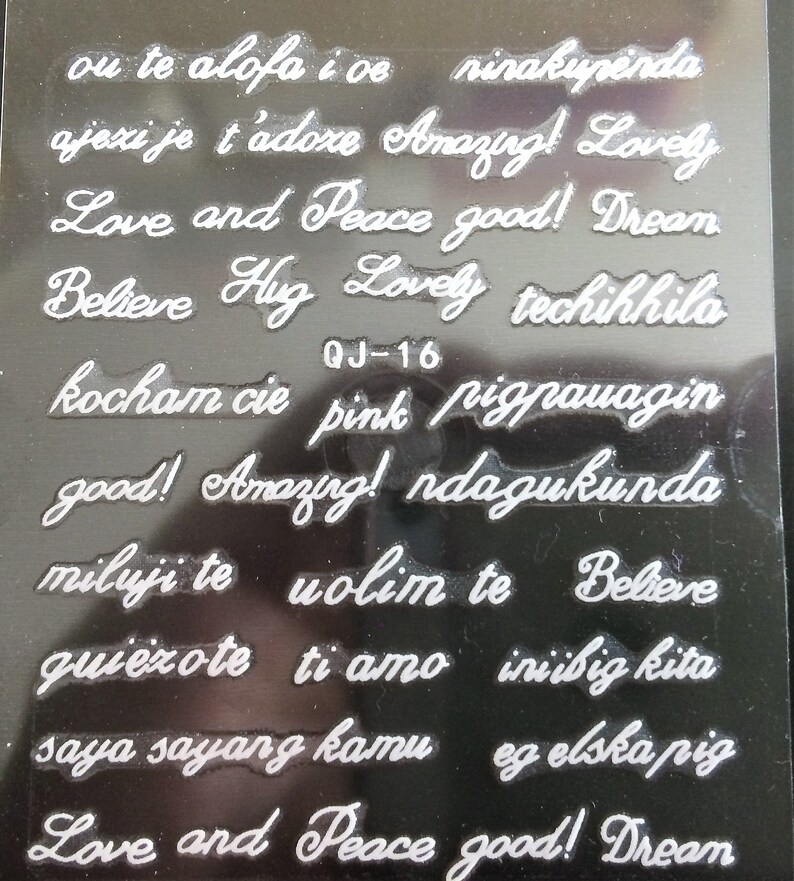 ou te alofa i oe ninakupenda
ajexi je t'adoxe Amazing! Lovely
Love and Peace good! Dream
Believe Hug Lovely techihhila
QJ-16
kocham cie pink pigpauagin
good! Amazing! ndagukunda
miluji te uolim te Believe
quiexote ti amo iniibig kita
saya sayang kamu eg elska pig
Love and Peace good! Dream